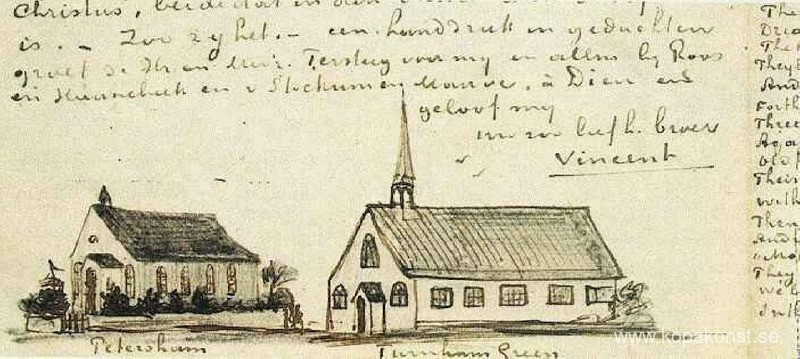 Christus,
is. – Zoo zy het. – een handdruk in gedachten
groet d. Hr en Mevr. Tersteeg voor my en allen by Roos
en Haanebeek en v Stockum en Mauve, à Dieu en
geloof my
uw zoo liefh. broer
Vincent
Petersham
Turnham Green
The
They
And
Forth
Three
Their
with
Then
And
They
www.kopakonst.se